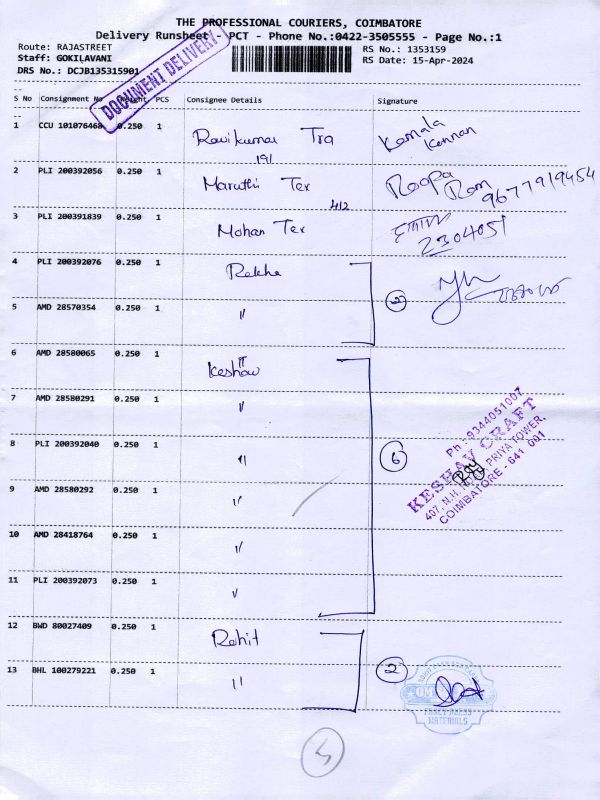 THE PROFESSIONAL COURIERS, COIMBATORE
Delivery Runsheet - PCT - Phone No.:0422-3505555 - Page No.:1
Route: RAJASTREET
RS No.: 1353159
Staff: GOKILAVANI
RS Date: 15-Apr-2024
DRS No.: DCJB135315901
DOCUMENT DELIVERY
S No Consignment No Weight PCS Consignee Details Signature
1 CCU 101076468 0.250 1 Ravikumar Tra Kamala Kannan
191
2 PLI 200392056 0.250 1 Maruthi Tex Roopa Ram 9677919454
412
3 PLI 200391839 0.250 1 Mohan Tex 2304051
4 PLI 200392076 0.250 1 Rekha
5 AMD 28570354 0.250 1 " 2
6 AMD 28580065 0.250 1 Keshav
7 AMD 28580291 0.250 1 "
8 PLI 200392040 0.250 1 " 6
9 AMD 28580292 0.250 1 "
10 AMD 28418764 0.250 1 "
11 PLI 200392073 0.250 1 "
Ph: 9344051007
KESHAV CRAFT
407, N.H. PRIYA TOWER,
COIMBATORE - 641 001
12 BWD 80027409 0.250 1 Rohit
13 BHL 100279221 0.250 1 " 2
OM
MATERIALS